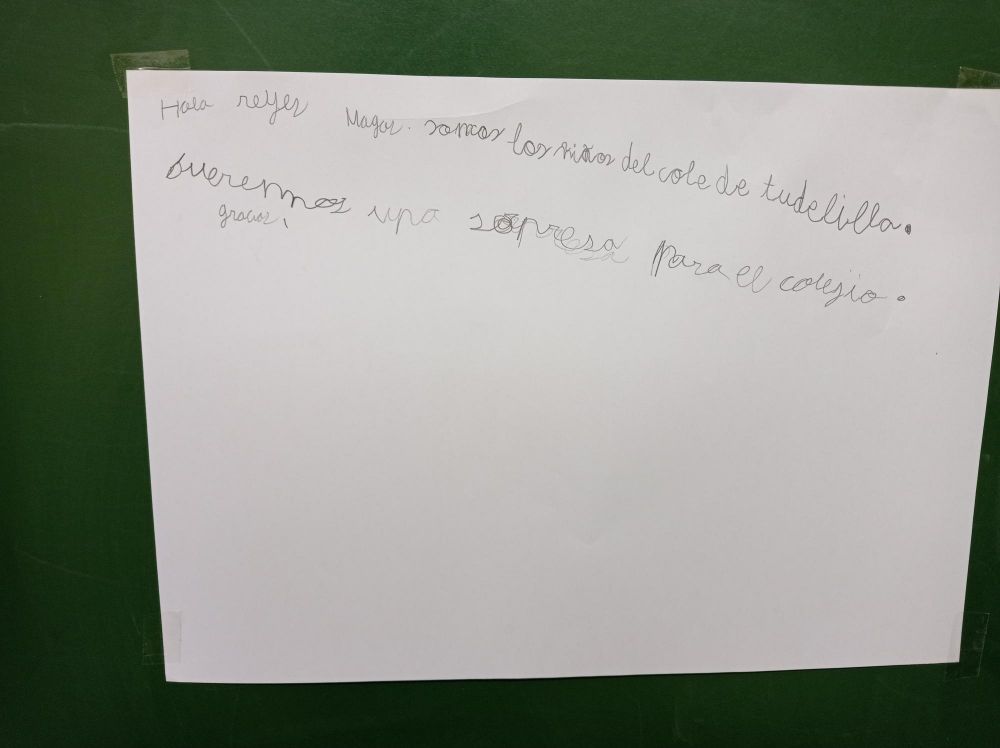 Hola reyes Magos. somos los niños del cole de tudelilla.
queremos una sopresa para el colejio.
gracias,